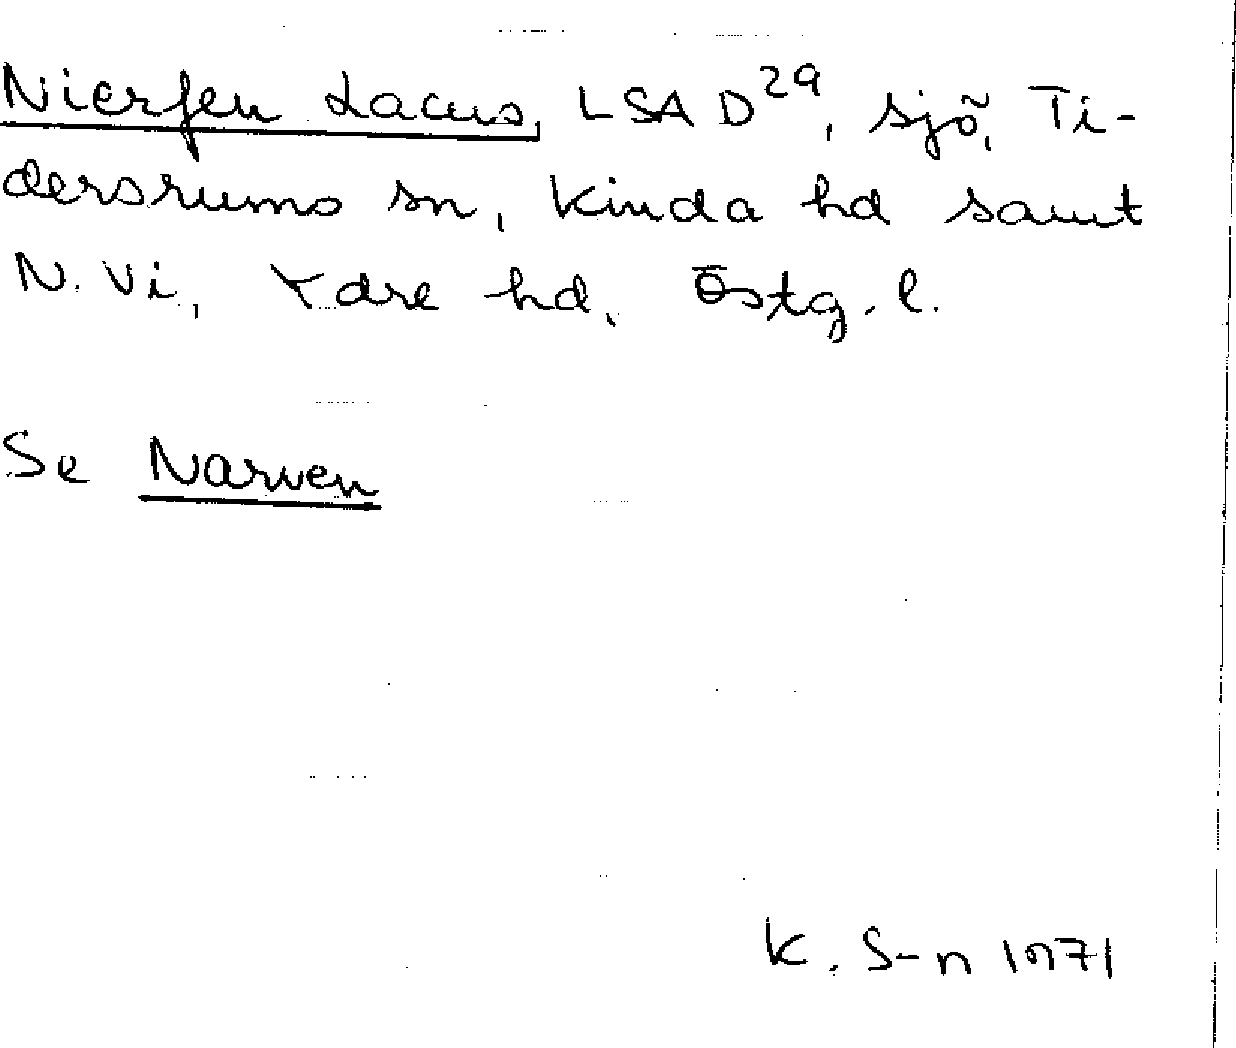 Nierfen Lacus, LSA D²⁹, sjö, Ti-
dersrums sn, Kinda hd samt
N. Vi, Ydre hd, Östg. l.
Se Narven
K. S-n 1971